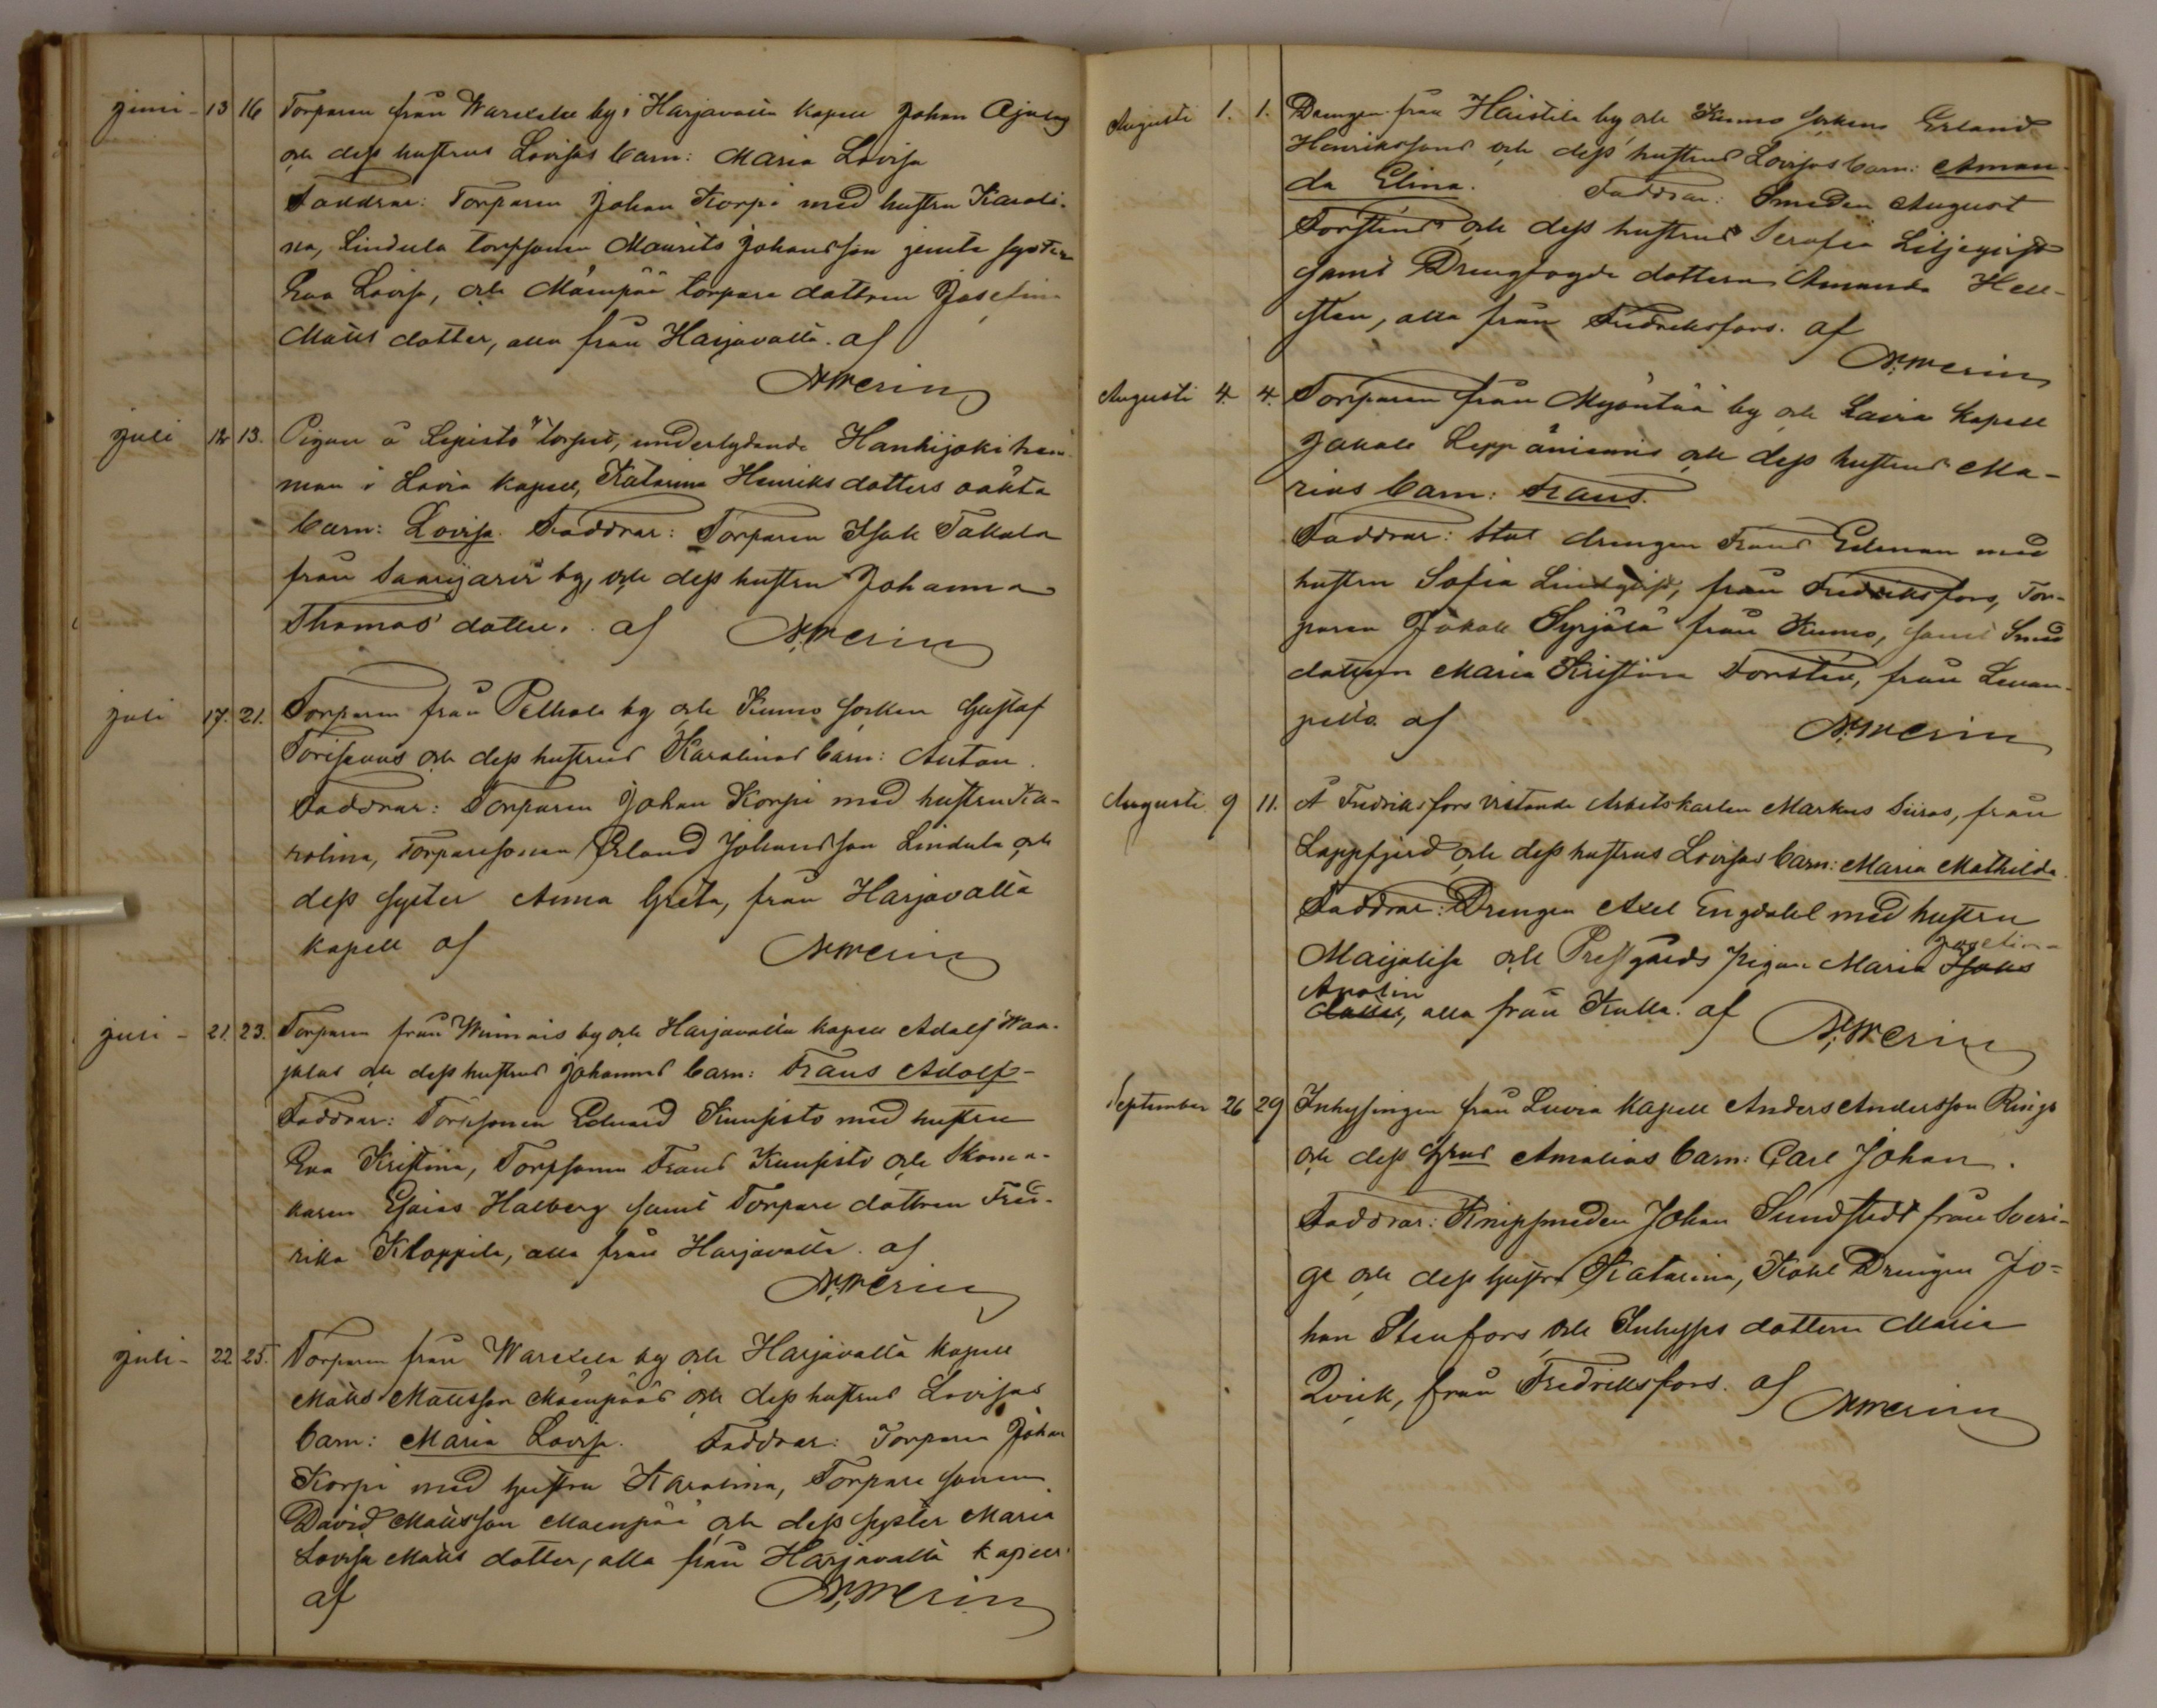 juni - 13 16 Torparen från Warelelee by i Harjavalta kapell Johan Ajalas
och dess hustrus Lovisas barn: Maria Lovisa
Faddrar: Torparen Johan Korpi med hustru Karoli-
na, Lindula torpsonen Maurits Johansson jemte syster
Eva Lovisa, och Mäenpää torpare dottren Josefina
Matts dotter, alla från Harjavalta. af
N. Merin
juli 12 13. Pigan å Lepistö torpet, underlydande Hankijoki hem-
man i Lavia kapell, Katarina Henriks dotters oäkta
barn: Lovisa. Faddrar: Torparen Isak Takala
från Saarijärvi by, och dess hustru Johanna
Thomas dotter. af N. Merin
juli 17. 21. Torparen från Pelhola by och Kumo socken Gustaf
och dess hustrus Karolinas barn: Anton.
Faddrar: Torparen Johan Korpi med hustru Ka-
rolina, Torparesonen Erland Johansson Lindula och
dess syster Anna Greta, från Harjavalta
kapell af N. Merin
juli - 21. 23. Torparen från by och Harjavalta kapell Adolf Waa-
jalas och dess hustrus Johannas barn: Frans Adolf -
Faddrar: Torpsonen Eduard Kuusisto med hustru
Eva Kristina, Torpsonen Frans Kuusisto och Skoma-
karen Esaias Halberg samt Torpare dottren Fred-
rika Kloppila, alla från Harjavalta. af
N. Merin
juli - 22 25. Torparen från Warelela by och Harjavalta kapell
Matts Mattsson Mäenpääs och dess hustrus Lovisas
barn: Maria Lovisa. Faddrar: Torparen Johan
Korpi med hustru Karolina, Torpare sonen
David Mattsson Mäenpää och dess syster Maria
Lovisa Matts dotter, alla från Harjavalta kapell.
af N. Merin
Augusti 1. 1. Drengen från Haistila by och Kumo sockens Erland
Henrikssons och dess hustrus Lovisas barn: Aman-
da Elina. Faddrar: Smeden August
Forstens och dess hustrus Serafia Liljeqvist
samt Drengfogde dottern Amanda Hell-
sten, alla från Fredriksfors. af
N. Merin
Augusti 4. 4. Torparen från by och Lavia kapell
Jakob Leppäniemis och dess hustrus Ma-
rias barn: Frans.
Faddrar: Stat drengen Frans Edeman med
hustru Sofia Lindqvist, från Fredriksfors, Tor-
paren Jakob Syrjälä från Kumo, samt Smed
dottren Maria Kristina Forsten, från Levan-
pelto. af N. Merin
Augusti 9 11. Å Fredriksfors vistande Arbetskarlen Markus Siiras, från
Lappfjerd och dess hustrus Lovisas barn: Maria Mathilda.
Faddrar: Drengen Axel Engdahl med hustru
Maijalisa och Prestgårds pigan Maria Isaks Josefin-
dotter, Apolin alla från Kulla. af N. Merin
September 26 29 Inhysingen från Luvia kapell Anders Andersson Rings
och dess Hjrus Amalias barn: Carl Johan.
Faddrar: Knipsmeden Johan Sundstedt från Sveri-
ge och dess hustru Katarina, Kohl Drengen Jo-
han Stenfors och Inhyses dottern Maria
Qvick, från Fredriksfors. af N. Merin